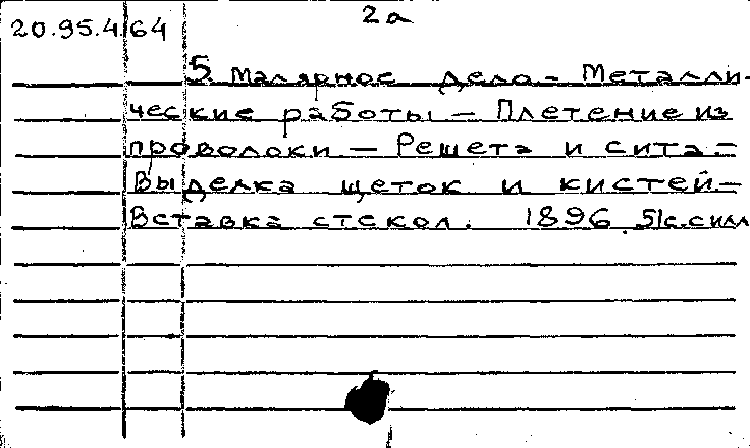 2а
20.95.4 64
5. Малярное дело – Металли-
ческие работы – Плетение из
проволоки – Решета и сита –
Выделка щеток и кистей –
Вставка стекол. 1896. 51с. с илл